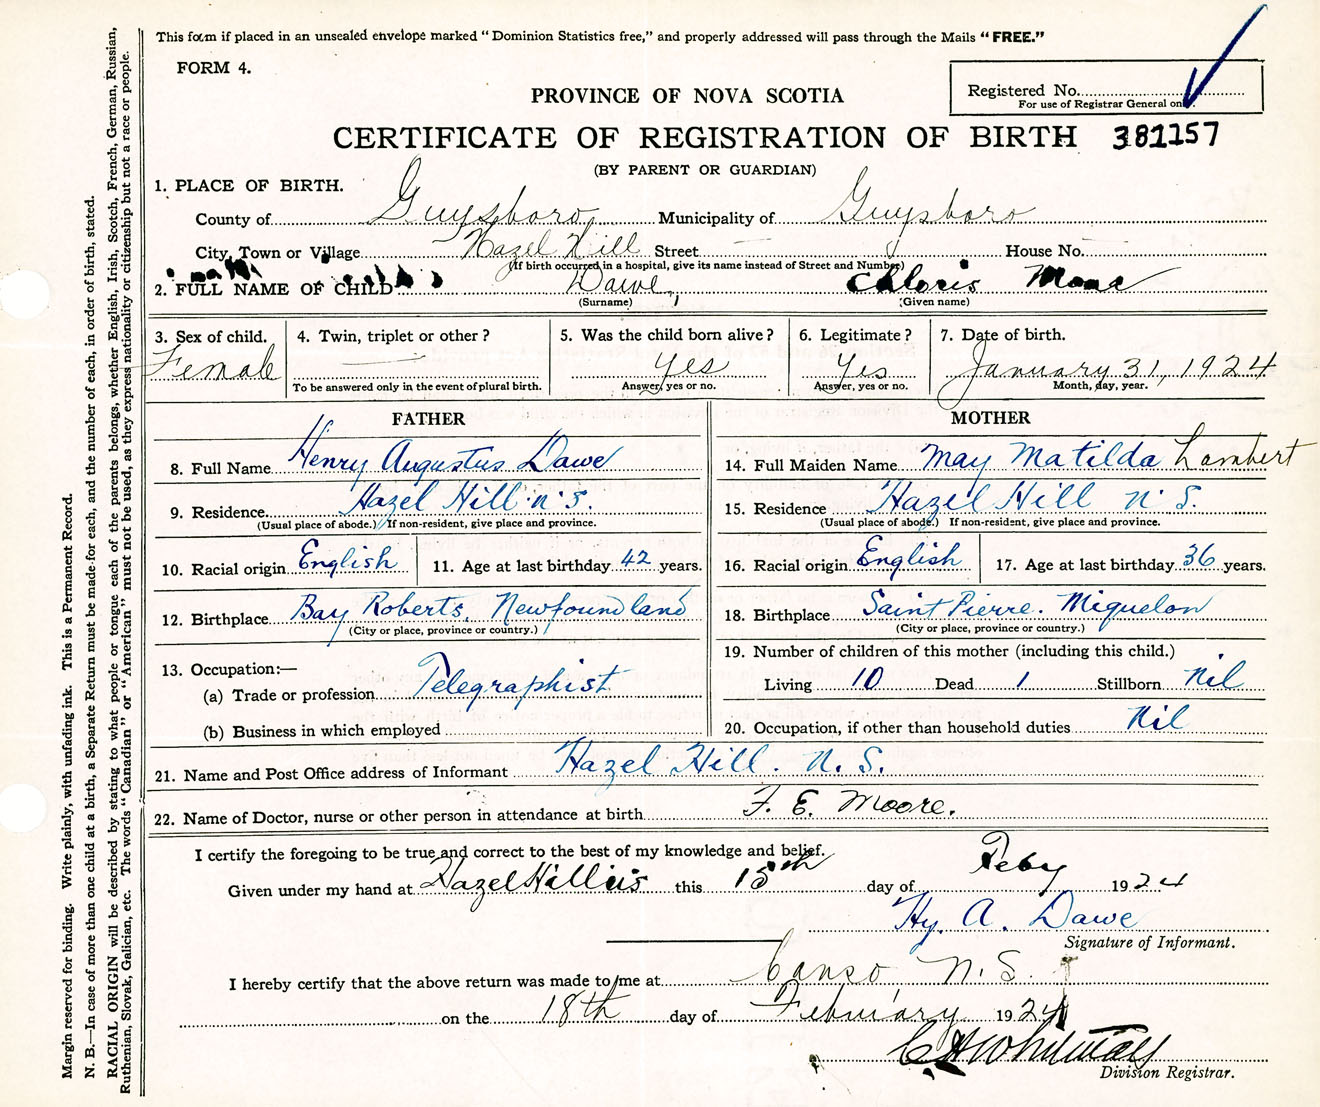 This form if placed in an unsealed envelope marked "Dominion Statistics free," and properly addressed will pass through the Mails "FREE."
FORM 4.
Registered No.
For use of Registrar General
PROVINCE OF NOVA SCOTIA
CERTIFICATE OF REGISTRATION OF BIRTH 381157
(BY PARENT OR GUARDIAN)
1. PLACE OF BIRTH.
County of Guysboro Municipality of Guysboro
City, Town or Village Hazel Hill Street — House No. —
(If birth occurred in a hospital, give its name instead of Street and Number)
2. FULL NAME OF CHILD Dawe, Chloris
(Surname) (Given name)
3. Sex of child. 4. Twin, triplet or other? 5. Was the child born alive? 6. Legitimate? 7. Date of birth.
Female — Yes Yes January 31, 1924
To be answered only in the event of plural birth. Answer, yes or no. Answer, yes or no. Month, day, year.
FATHER
8. Full Name Henry Augustus Dawe
9. Residence Hazel Hill N.S.
(Usual place of abode.) If non-resident, give place and province.
10. Racial origin English 11. Age at last birthday 42 years.
12. Birthplace Bay Roberts, Newfoundland
(City or place, province or country.)
13. Occupation:—
(a) Trade or profession Telegraphist
(b) Business in which employed
MOTHER
14. Full Maiden Name May Matilda Lambert
15. Residence Hazel Hill N.S.
(Usual place of abode.) If non-resident, give place and province.
16. Racial origin English 17. Age at last birthday 36 years.
18. Birthplace Saint Pierre. Miquelon
(City or place, province or country.)
19. Number of children of this mother (including this child.)
Living 10 Dead 1 Stillborn Nil
20. Occupation, if other than household duties Nil
21. Name and Post Office address of Informant Hazel Hill. N.S.
22. Name of Doctor, nurse or other person in attendance at birth F. E. Moore.
I certify the foregoing to be true and correct to the best of my knowledge and belief.
Given under my hand at Hazel Hill this 15th day of Feby 1924
Hy. A. Dawe
Signature of Informant.
I hereby certify that the above return was made to me at Canso N.S.
on the 18th day of February 1924
Division Registrar.
Margin reserved for binding. Write plainly, with unfading ink. This is a Permanent Record.
N. B.—In case of more than one child at a birth, a Separate Return must be made for each, and the number of each, in order of birth, stated.
RACIAL ORIGIN will be described by stating to what people or tongue each of the parents belongs, whether English, Irish, Scotch, French, German, Russian,
Ruthenian, Slovak, Galician, etc. The words "Canadian" or "American" must not be used, as they express nationality or citizenship but not a race or people.